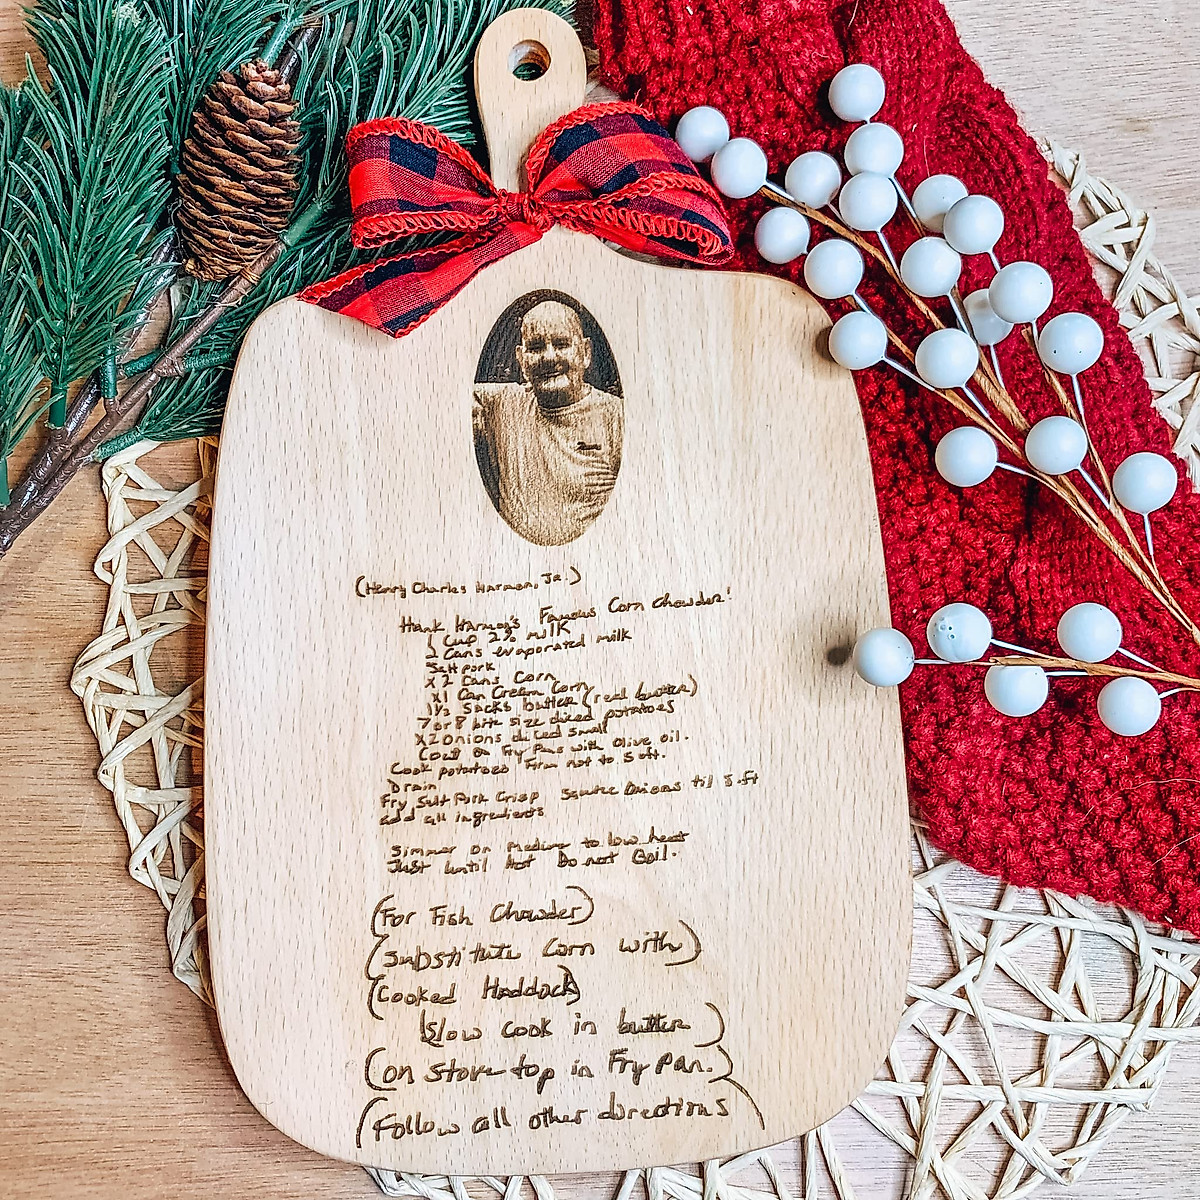 (Henry Charles Harmon, Jr.)
Hank Harmon's Famous Corn Chowder!
1 Cup 2% milk
2 Cans evaporated milk
Salt pork
x 2 Cans Corn
x1 Can Cream Corn
1½ Sacks butter (real butter)
7 or 8 bite size diced potatoes
x2 onions diced small
Coat Fry Pan with Olive oil.
Cook potatoes Firm not to Soft.
Drain
Fry Salt Pork Crisp Sautee Onions til Soft
add all ingredients
Simmer on Medium to low heat
Just until Hot Do not Boil.
(For Fish Chowder)
(Substitute Corn with)
(Cooked Haddock)
Slow cook in butter)
(on stove top in Fry pan.)
(Follow all other directions)